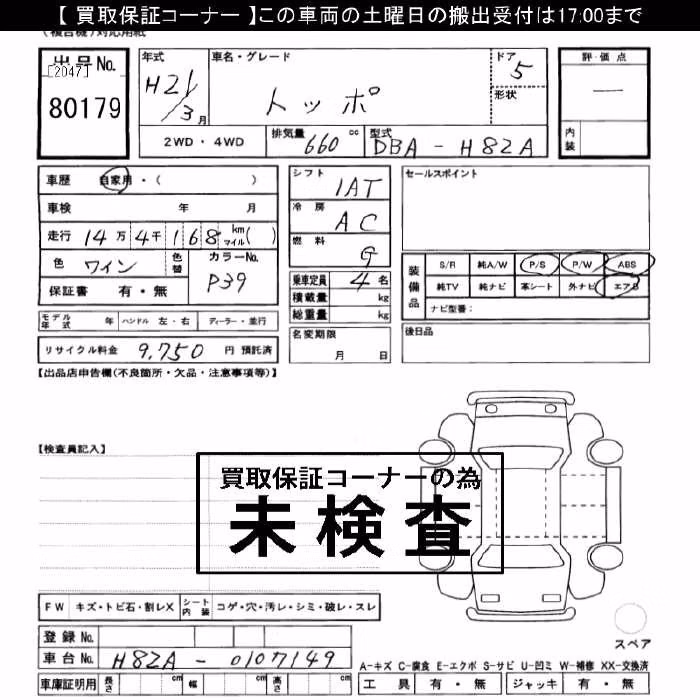 【 買取保証コーナー 】この車両の土曜日の搬出受付は17:00まで
(複合機)対応用紙
出品No. [2047] 80179
年式 H21/3月
車名・グレード トッポ
ドア 5
形状
評価点 —
内装
2WD・4WD
排気量 660 cc
型式 DBA-H82A
車歴 自家用・( )
車検 年 月
走行 14万4千168 km マイル( )
色 ワイン 色替
カラーNo. P39
保証書 有・無
シフト IAT
冷房 AC
燃料 G
乗車定員 4名
積載量 kg
総重量 kg
名変期限 月 日
セールスポイント
装備品
S/R 純A/W P/S P/W ABS
純TV 純ナビ 革シート 外ナビ エアB
ナビ型番:
後日品
モデル年式 年 ハンドル 左・右 ディーラー・並行
リサイクル料金 9,750 円 預託済
【出品店申告欄(不良箇所・欠品・注意事項等)】
【検査員記入】
買取保証コーナーの為
未検査
FW キズ・トビ石・割レX
シート内装 コゲ・穴・汚レ・シミ・破レ・スレ
登録No.
車台No. H82A-0107149
車庫証明用 長さ cm 幅 cm 高さ cm
スペア
A-キズ C-腐食 E-エクボ S-サビ U-凹ミ W-補修 XX-交換済
工具 有・無 ジャッキ 有・無